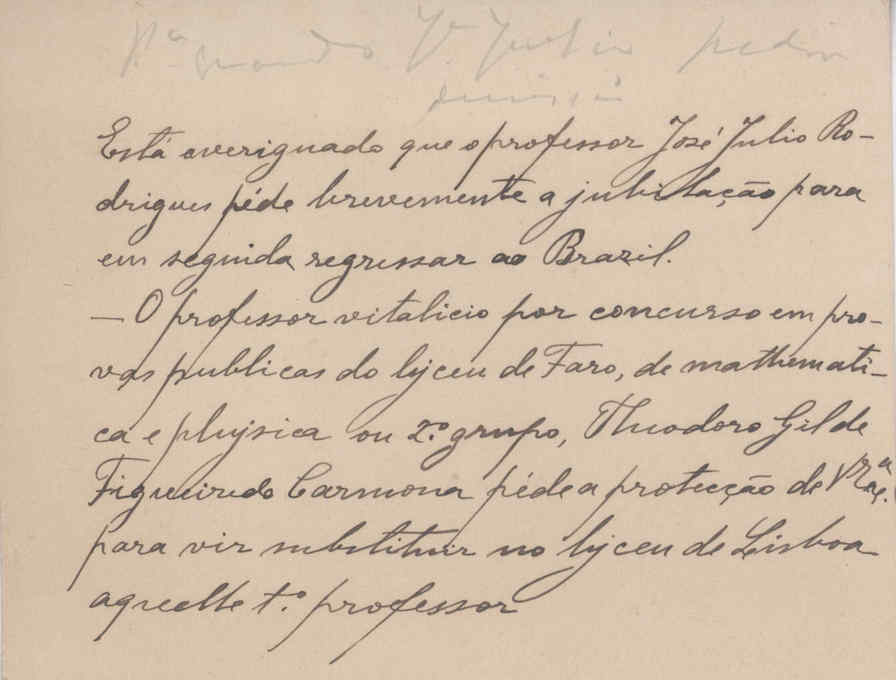 P.ª quando J.e Julio pedir
demissão
Está averiguado que o professor José Julio Ro-
drigues péde brevemente a jubilação para
em seguida regressar ao Brazil.
— O professor vitalicio por concurso em pro-
vas publicas do lyceu de Faro, de mathemati-
ca e physica ou 2.º grupo, Theodoro Gil de
Figueiredo Carmona péde a protecção de
para vir substituir no lyceu de Lisboa
aquelle t.º professor